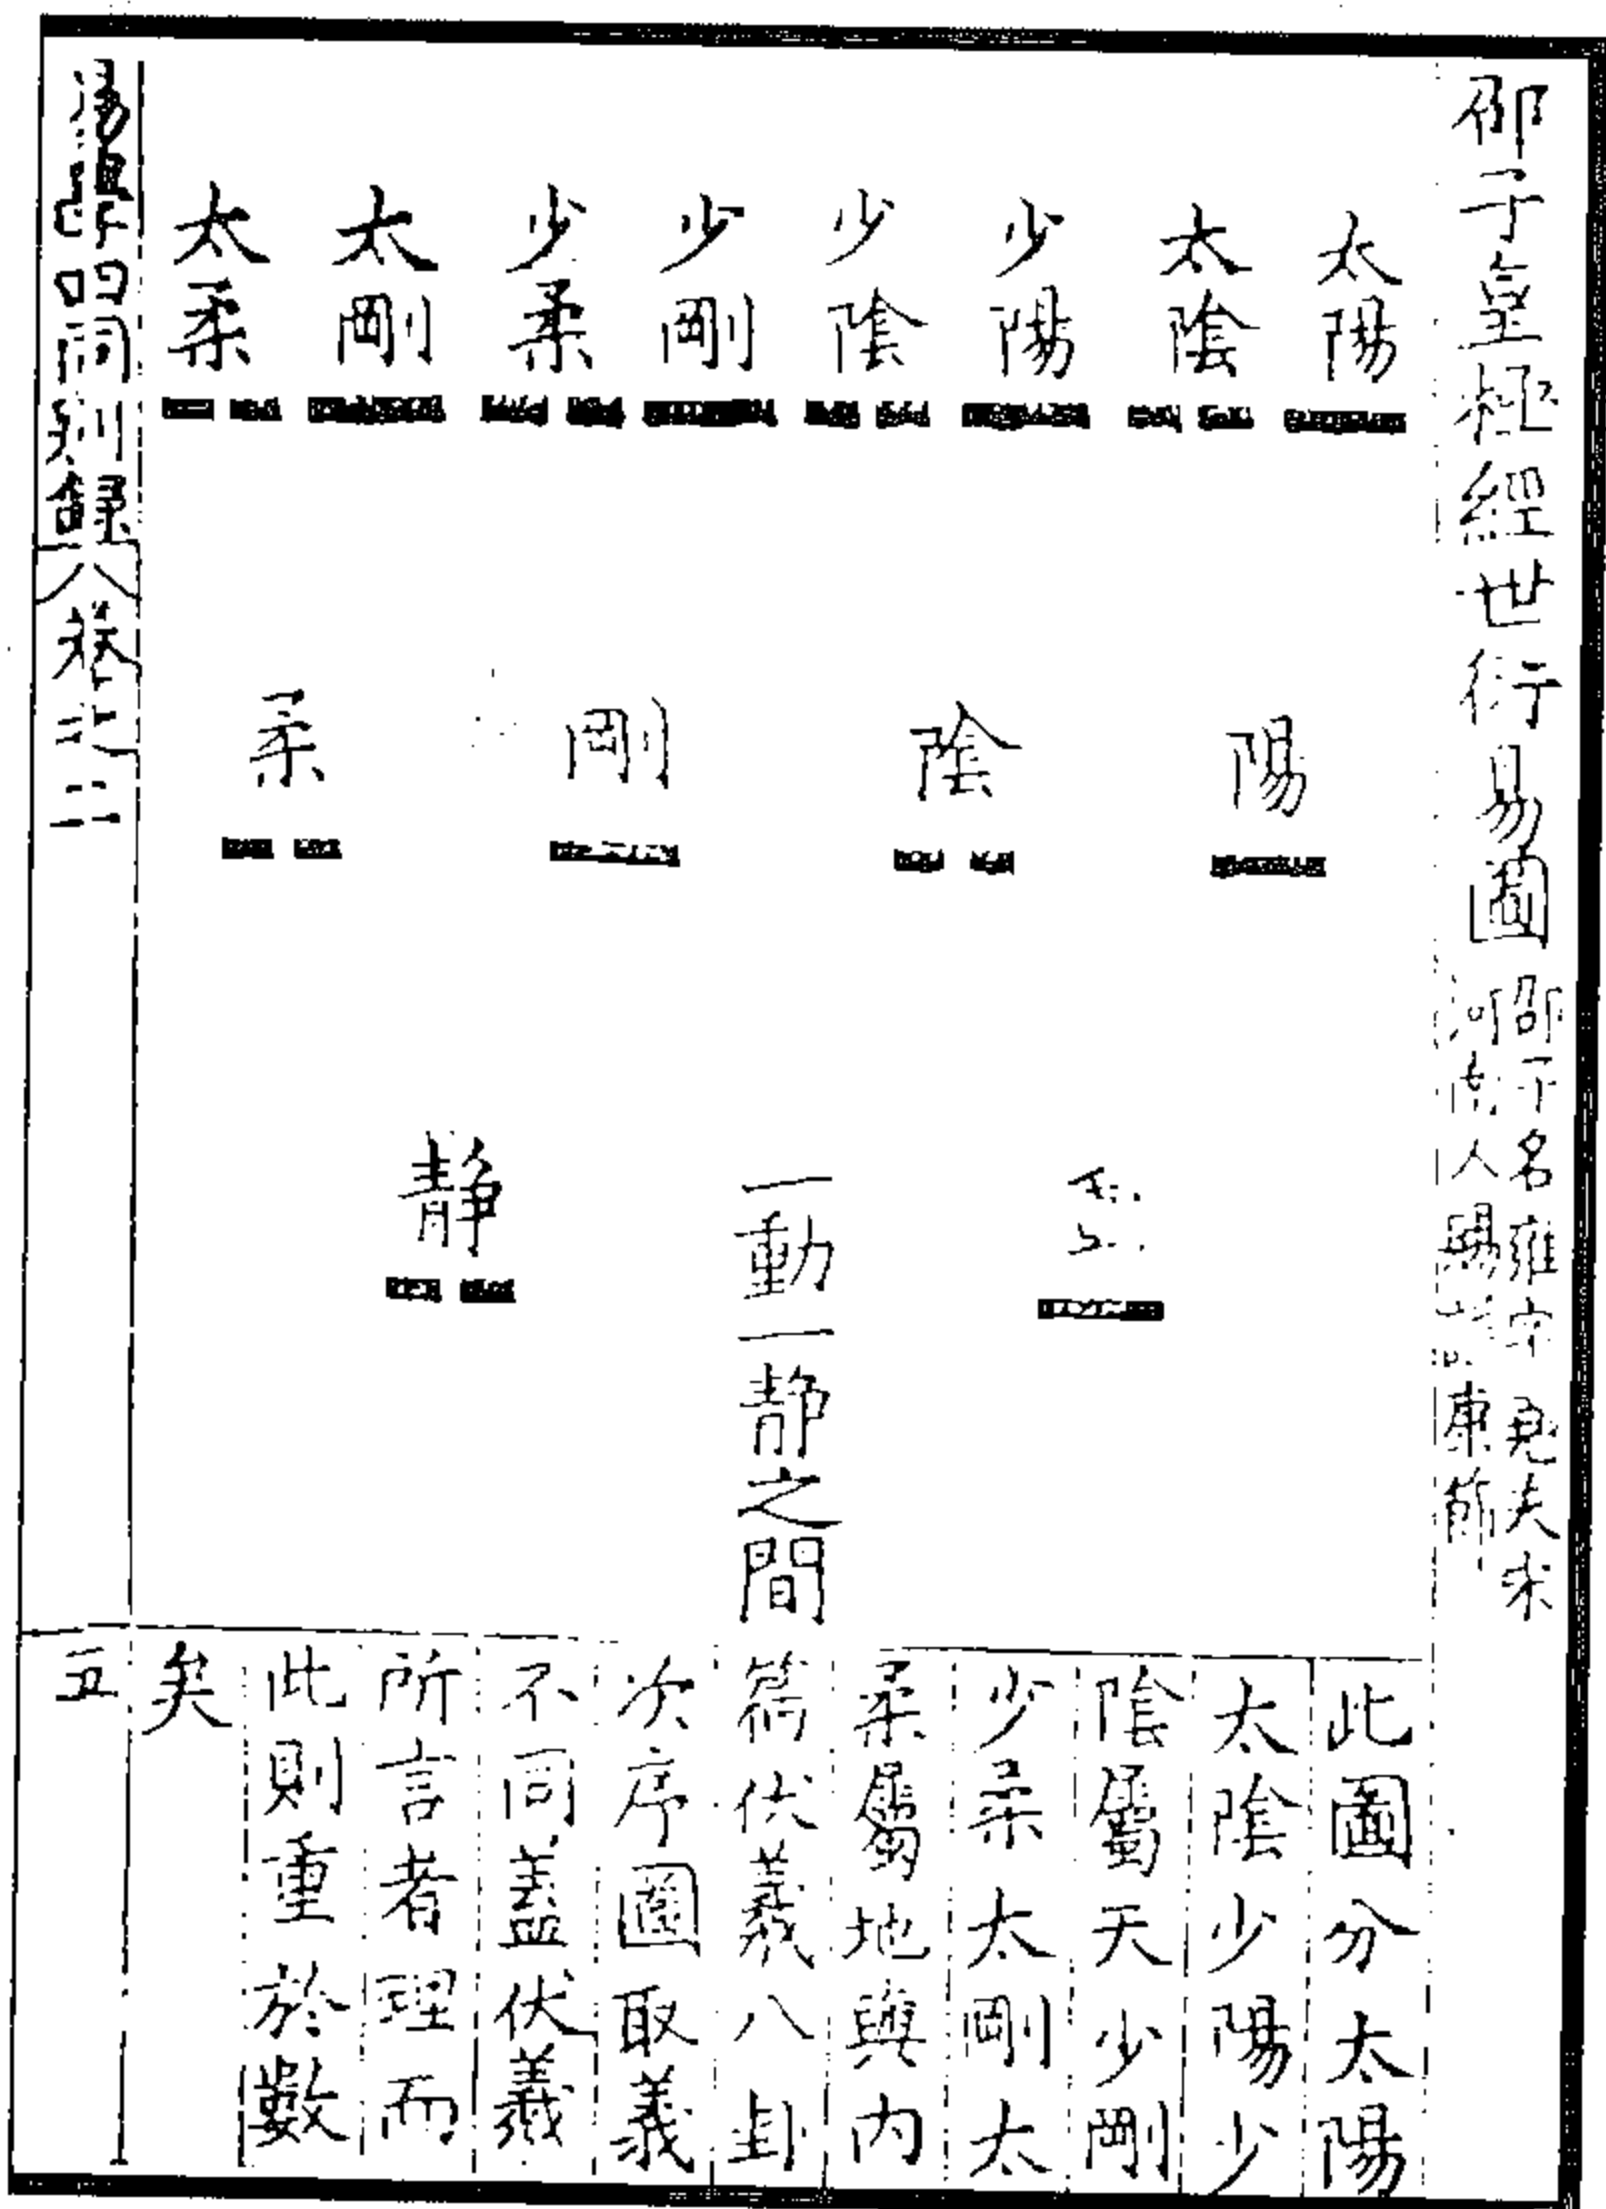 邵子皇極經世衍易圖
邵子名雍字堯夫宋
河南人賜諡康節
太陽
太陰
少陽
少陰
少剛
少柔
太剛
太柔
陽
陰
剛
柔
一動一静之間
静
此圖分太陽
太陰少陽少
陰屬天少剛
少柔太剛太
柔屬地與内
篇伏羲八卦
次序圖取義
不同盖伏羲
所言者理而
此則重於數
矣
易學四同别録 卷之二
五